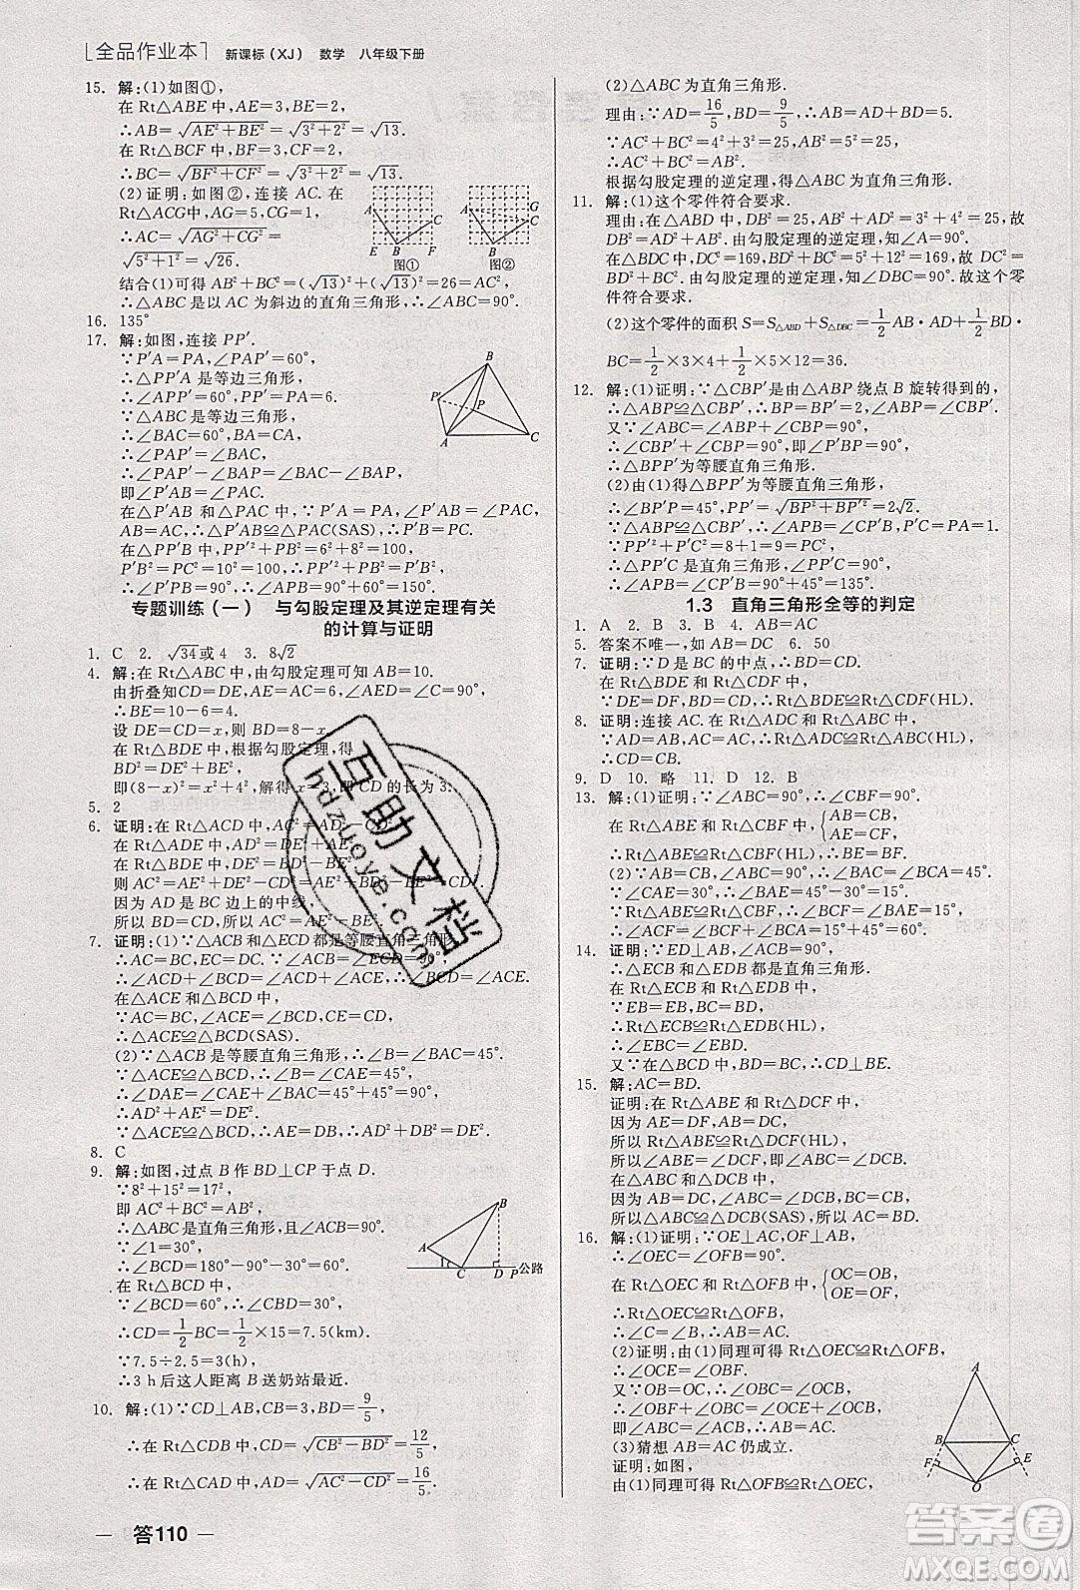 [全品作业本] 新课标(XJ) 数学 八年级下册
15. 解:(1)如图①,
在 Rt△ABE 中,AE=3,BE=2,
∴AB=√(AE²+BE²)=√(3²+2²)=√13.
在 Rt△BCF 中,BF=3,CF=2,
∴BC=√(BF²+CF²)=√(3²+2²)=√13.
(2)证明:如图②,连接 AC. 在
Rt△ACG中,AG=5,CG=1,
∴AC=√(AG²+CG²)=
√(5²+1²)=√26.
A C B E F 图①
A G C B 图②
结合(1)可得 AB²+BC²=(√13)²+(√13)²=26=AC²,
∴△ABC 是以 AC 为斜边的直角三角形,∴∠ABC=90°.
16. 135°
17. 解:如图,连接 PP′.
∵P′A=PA,∠PAP′=60°,
∴△PP′A 是等边三角形,
∴∠APP′=60°,PP′=PA=6.
∵△ABC 是等边三角形,
∴∠BAC=60°,BA=CA,
∴∠PAP′=∠BAC,
∴∠PAP′-∠BAP=∠BAC-∠BAP,
即∠P′AB=∠PAC.
B P′ P A C
在△P′AB 和△PAC 中,∵P′A=PA,∠P′AB=∠PAC,
AB=AC,∴△P′AB≌△PAC(SAS),∴P′B=PC.
在△PP′B 中,PP′²+PB²=6²+8²=100,
P′B²=PC²=10²=100,∴PP′²+PB²=P′B²,
∴∠P′PB=90°,∴∠APB=90°+60°=150°.
专题训练(一) 与勾股定理及其逆定理有关
的计算与证明
1. C 2. √34或4 3. 8√2
4. 解:在 Rt△ABC 中,由勾股定理可知 AB=10.
由折叠知CD=DE,AE=AC=6,∠DEA=∠C=90°,
∴BE=10-6=4.
设 DE=CD=x,则 BD=8-x,
在 Rt△BDE 中,根据勾股定理,得
BD²=DE²+BE²,
即(8-x)²=x²+4²,解得x=3,即 CD 的长为 3.
5. 2
6. 证明:在 Rt△ACD 中,AC²=AD²-CD²,
在 Rt△ADE 中,AD²=AE²+DE²,
在 Rt△BDE 中,DE²=BD²-BE²,
则 AC²=AE²+BD²-BE²-CD².
因为 AD 是 BC 边上的中线,
所以 BD=CD,所以 AC²=AE²-BE².
7. 证明:(1)∵△ACB 和△ECD 都是等腰直角三角形,
∴AC=BC,EC=DC.∵∠ACB=∠ECD=90°,
∴∠ACD+∠BCD=∠ACD+∠ACE,∴∠BCD=∠ACE.
在△ACE 和△BCD 中,
∵AC=BC,∠ACE=∠BCD,CE=CD,
∴△ACE≌△BCD(SAS).
(2)∵△ACB 是等腰直角三角形,∴∠B=∠BAC=45°.
∵△ACE≌△BCD,∴∠B=∠CAE=45°,
∴∠DAE=∠CAE+∠BAC=45°+45°=90°,
∴AD²+AE²=DE².
∵△ACE≌△BCD,∴AE=DB,∴AD²+DB²=DE².
8. C
9. 解:如图,过点 B 作 BD⊥CP 于点 D.
∵8²+15²=17²,
即 AC²+BC²=AB²,
∴△ABC是直角三角形,且∠ACB=90°.
∵∠1=30°,
∴∠BCD=180°-90°-30°=60°.
在 Rt△BCD 中,
∵∠BCD=60°,∴∠CBD=30°,
∴CD=1/2BC=1/2×15=7.5(km).
∵7.5÷2.5=3(h),
∴3 h后这人距离 B 送奶站最近.
B A 1 C D P 公路
10. 解:(1)∵CD⊥AB,CB=3,BD=9/5,
∴在 Rt△CDB 中,CD=√(CB²-BD²)=12/5,
∴在 Rt△CDA 中,AD=√(AC²-CD²)=16/5.
(2)△ABC 为直角三角形.
理由:∵AD=16/5,BD=9/5,∴AB=AD+BD=5.
∵AC²+BC²=4²+3²=25=5²,
∴AC²+BC²=AB².
根据勾股定理的逆定理,得△ABC为直角三角形.
11. 解:(1)这个零件符合要求.
理由:在△ABD 中,DB²=25,AB²+AD²=3²+4²=25,故
DB²=AB²+AD². 由勾股定理的逆定理,知∠A=90°.
在△BDC中,DC²=169,BD²+BC²=25+144=169,故 DC²=
BD²+BC². 由勾股定理的逆定理,知∠DBC=90°. 因此这个零
件符合要求.
(2)这个零件的面积 S=S△ABD+S△DBC=1/2AB·AD+1/2BD·
BC=1/2×3×4+1/2×5×12=36.
12. 解:(1)证明:∵△CBP′是由△ABP 绕点 B 旋转得到的,
∴△ABP≌△CBP′,∴BP=BP′,∠ABP=∠CBP′.
又∵∠ABC=∠ABP+∠CBP=90°,
∴∠CBP′+∠CBP=90°,即∠P′BP=90°,
∴△BPP′为等腰直角三角形.
(2)由(1)得△BPP′为等腰直角三角形,
∴∠BP′P=45°,PP′=√(BP²+BP′²)=2√2.
∵△ABP≌△CBP′,∴∠APB=∠CP′B,P′C=PA=1.
∵PP′²+P′C²=8+1=9=PC²,
∴△PP′C 为直角三角形,且∠PP′C=90°,
∴∠APB=∠CP′B=45°+90°=135°.
1.3 直角三角形全等的判定
1. A 2. B 3. B 4. AB=AC
5. 答案不唯一,如 AB=DC 6. 50
7. 证明:∵D 是 BC 的中点,∴BD=CD.
在 Rt△BDE 和 Rt△CDF 中,
∵DE=DF,BD=CD,∴Rt△BDE≌Rt△CDF(HL).
8. 证明:连接 AC. 在 Rt△ADC 和 Rt△ABC 中,
∵AD=AB,AC=AC,∴Rt△ADC≌Rt△ABC(HL),
∴CD=CB.
9. D 10. 略 11. D 12. B
13. 解:(1)证明:∵∠ABC=90°,∴∠CBF=90°,
在 Rt△ABE 和 Rt△CBF 中,{AB=CB,
AE=CF,
∴Rt△ABE≌Rt△CBF(HL).
(2)∵AB=CB,∠ABC=90°,∴∠CAB=45°.
∵∠CAE=15°,∴∠BAE=30°.
∵Rt△ABE≌Rt△CBF,∴∠BCF=∠BAE=30°,
∴∠ACF=∠BCF+∠ACB=30°+45°=75°.
14. 证明:∵ED⊥AB,∠ACB=90°,
∴△ECB 和△EDB 都是直角三角形.
在 Rt△ECB 和 Rt△EDB 中,
∵EB=EB,BC=BD,
∴Rt△ECB≌Rt△EDB(HL),
∴∠EBC=∠EBD.
又∵BD=BC,∴BE⊥CD.
15. 解:AC=BD.
证明:在 Rt△ABE 和 Rt△DCF 中,
因为 AE=DF,AB=DC,
所以 Rt△ABE≌Rt△DCF(HL),
所以∠ABE=∠DCF,即∠ABC=∠DCB.
在△ABC 和△DCB 中,
因为 AB=DC,∠ABC=∠DCB,BC=CB,
所以△ABC≌△DCB(SAS),所以 AC=BD.
16. 解:(1)证明:∵OE⊥AC,OF⊥AB,
∴∠OEC=∠OFB=90°.
在 Rt△OEC 和 Rt△OFB 中,{OC=OB,
OE=OF,
∴Rt△OEC≌Rt△OFB,
∴∠C=∠B,∴AB=AC.
(2)证明:由(1)同理可得 Rt△OEC≌Rt△OFB,
∴∠OCE=∠OBF.
又∵OB=OC,∴∠OBC=∠OCB,
∴∠OBF+∠OBC=∠OCE+∠OCB,
即∠ABC=∠ACB,∴AB=AC.
(3)猜想 AB=AC仍成立.
证明:如图,
由(1)同理可得 Rt△OFB≌Rt△OEC,
A B C F E O
— 答110 —
互助文档
hdzuoye.com
答案圈
MXQE.COM